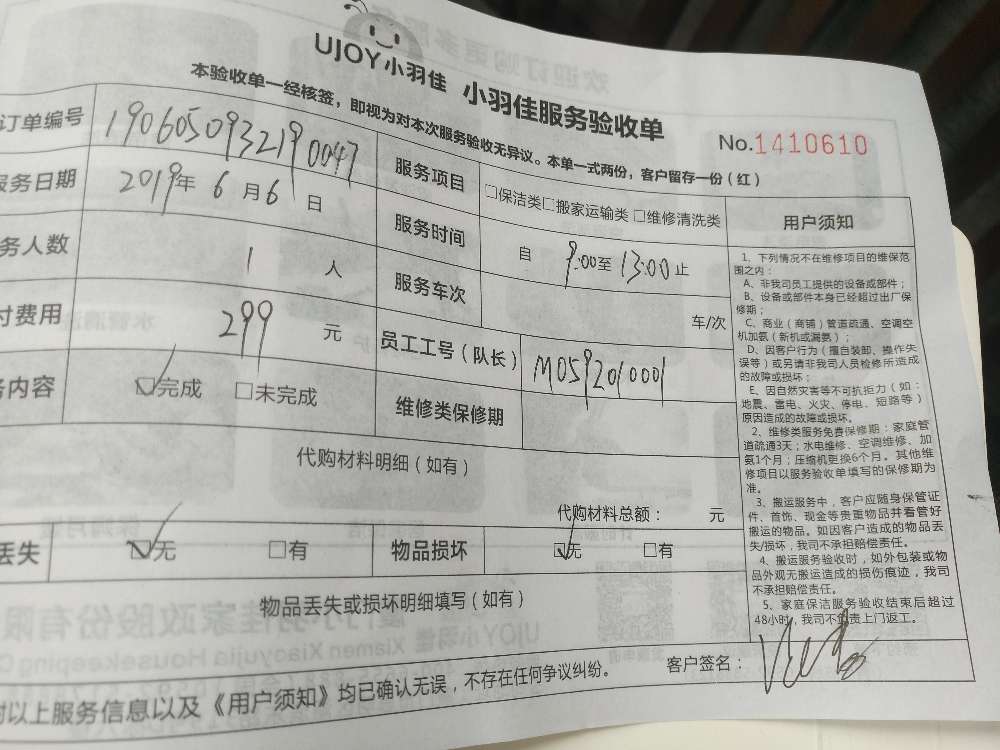 UJOY小羽佳 小羽佳服务验收单
本验收单一经核签，即视为对本次服务验收无异议。本单一式两份，客户留存一份（红）
No.1410610
订单编号 1906050932190047
服务项目 □保洁类□搬家运输类 □维修清洗类
服务日期 2019年 6 月 6 日
服务时间 自 9:00至 13:00 止
务人数 1 人
服务车次 车/次
付费用 299 元
员工工号（队长） M0592010001
务内容 ☑完成 □未完成
维修类保修期
代购材料明细（如有）
代购材料总额： 元
丢失 ☑无 □有
物品损坏 ☑无 □有
物品丢失或损坏明细填写（如有）
用户须知
1、下列情况不在维修项目的维保范
围之内：
A、非我司员工提供的设备或部件；
B、设备或部件本身已经超过出厂保
修期；
C、商业（商铺）管道疏通、空调空
机加氨（新机或漏氨）；
D、因客户行为（擅自装卸、操作失
误等）或另请非我司人员检修所造成
的故障或损坏；
E、因自然灾害等不可抗拒力（如：
地震、雷电、火灾、停电、短路等）
原因造成的故障或损坏。
2、维修类服务免费保修期：家庭管
道疏通3天；水电维修、空调维修、加
氨1个月；压缩机更换6个月。其他维
修项目以服务验收单填写的保修期为
准。
3、搬运服务中，客户应随身保管证
件、首饰、现金等贵重物品并看管好
搬运的物品。如因客户造成的物品丢
失/损坏，我司不承担赔偿责任。
4、搬运服务验收时，如外包装或物
品外观无搬运造成的损伤痕迹，我司
不承担赔偿责任。
5、家庭保洁服务验收结束后超过
48小时，我司不负责上门返工。
对以上服务信息以及《用户须知》均已确认无误，不存在任何争议纠纷。
客户签名：